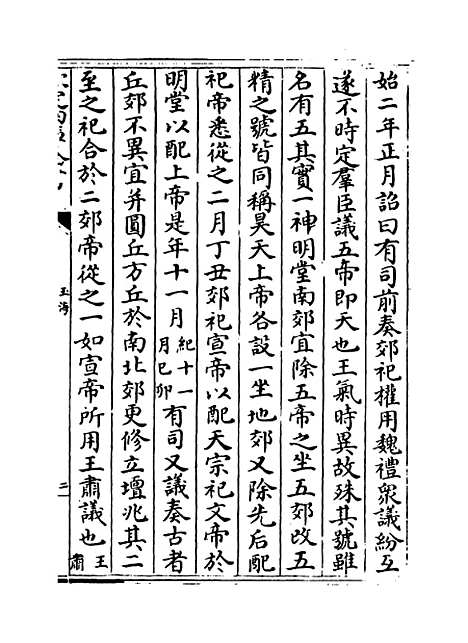 始二年正月詔曰有司前奏郊祀權用魏禮衆議紛互
遂不時定羣臣議五帝即天也王氣時異故殊其號雖
名有五其實一神明堂南郊宜除五帝之坐五郊改五
精之號皆同稱昊天上帝各設一坐地郊又除先后配
祀帝悉從之二月丁丑郊祀宣帝以配天宗祀文帝於
明堂以配上帝是年十一月紀十一月己卯有司又議奏古者
丘郊不異宜并圓丘方丘於南北郊更修立壇兆其二
至之祀合於二郊帝從之一如宣帝所用王肅議也王肅
玉海